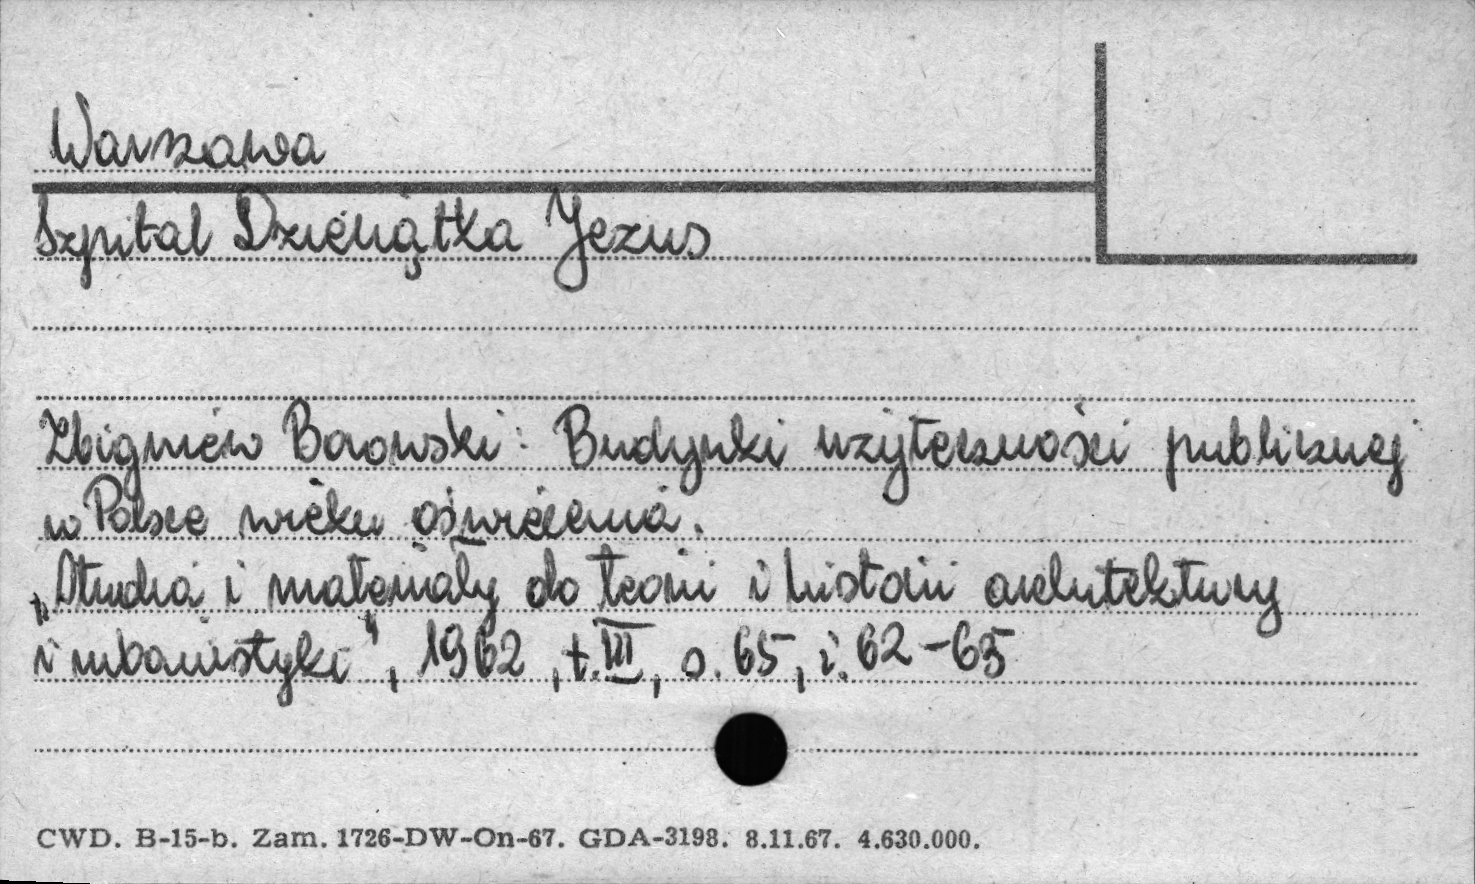 Warszawa
Szpital Dzieciątka Jezus
Zbigniew Borowski: Budynki użyteczności publicznej
w Polsce wieku oświecenia.
„Studia i materiały do teorii i historii architektury
i urbanistyki", 1962, t. III, s. 65, i. 62-65
CWD. B-15-b. Zam. 1726-DW-On-67. GDA-3198. 8.11.67. 4.630.000.